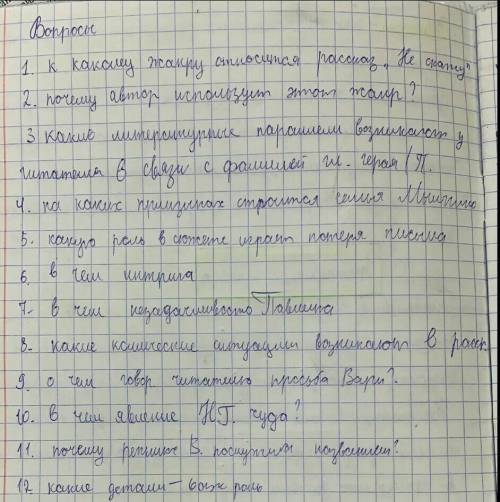 Вопросы
1. к какому жанру относится рассказ „Не скажу"
2. почему автор использует этот жанр?
3 какие литературные параллели возникают у
читателя в связи с фамилией гл. героя (П.
4. на каких принципах строится семья
5. какую роль в сюжете играет потеря письма
6. в чем интрига
7. в чем незадачливость Павлика
8. какие комические ситуации возникают в расск.
9. о чем говор читателю просьба Вари?
10. в чем явление НГ. чуда?
11. почему реплика В. послужила названием?
12 какие детали – роль